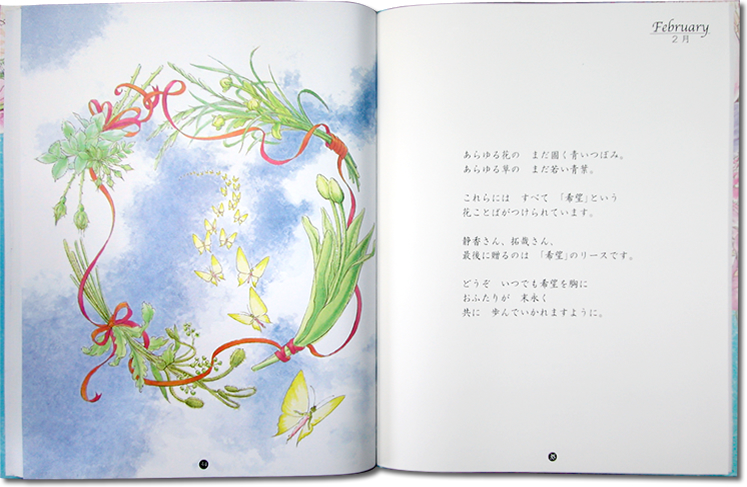 February
2月
あらゆる花の　まだ固く青いつぼみ。
あらゆる草の　まだ若い青葉。
これらには　すべて　「希望」という
花ことばがつけられています。
静香さん、拓哉さん、
最後に贈るのは　「希望」のリースです。
どうぞ　いつでも希望を胸に
おふたりが　末永く
共に　歩んでいかれますように。